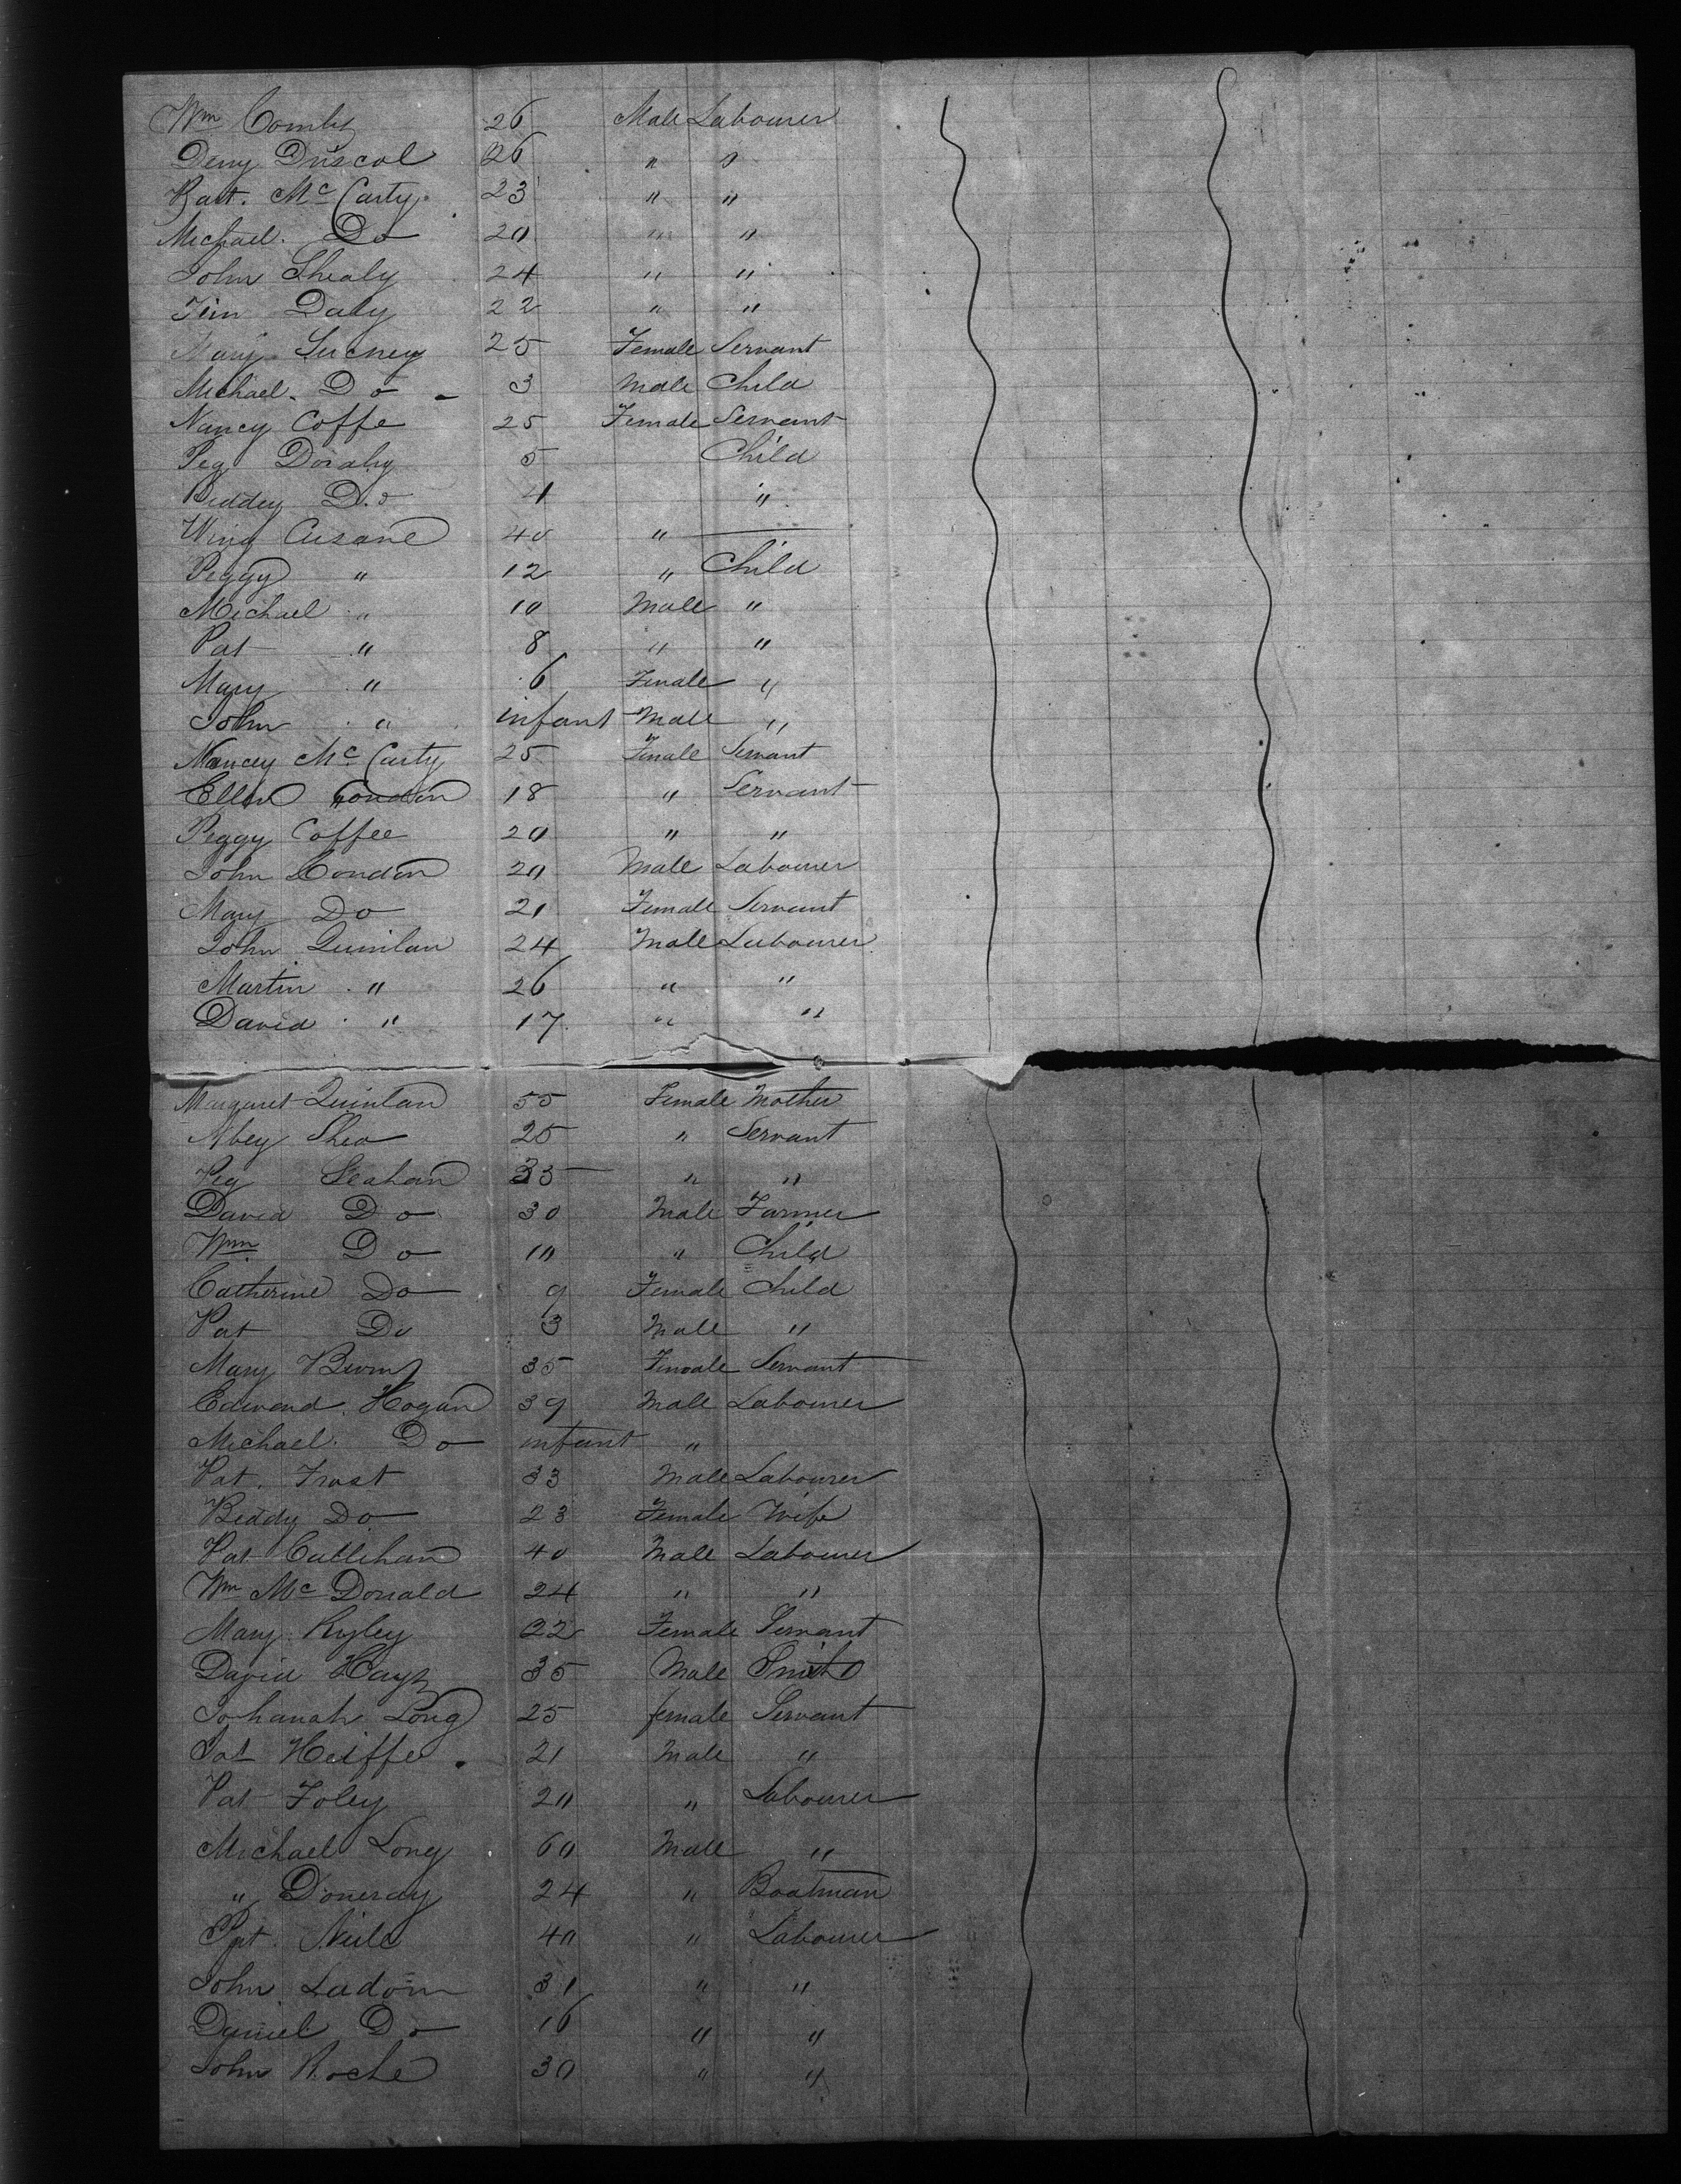 Wm Combs 26 Male Labourer
Deny Driscol 26 " "
Bart. Mc Carty 23 " "
Michael Do 20 " "
John Shealy 24 " "
Tim Daly 22 " "
Mary Lucney 25 Female Servant
Michael Do 3 Male Child
Nancy Coffe 25 Female Servant
Peg Dorahy 5 Child
Biddey Do 4 "
Wing Cusane 40 "
Peggy " 12 " Child
Michael " 10 Male "
Pat " 8 " "
Mary " 6 Female "
John " infant Male "
Nancey Mc Carty 25 Female Servant
Ellen Condon 18 " Servant
Peggy Coffee 20 " "
John Condon 20 Male Labourer
Mary Do 21 Female Servant
John Quinlan 24 Male Labourer
Martin " 26 " "
David " 17 " "
Margaret Quinlan 55 Female Mother
Abey Shea 25 " Servant
Peg Leahan 35 " "
David Do 30 Male Farmer
Wm Do 10 " Child
Catherine Do 9 Female Child
Pat Do 3 Male "
Mary 35 Female Servant
Edward Hogan 39 Male Labourer
Michael Do infant "
Pat. Frost 33 Male Labourer
Biddy Do 23 Female Wife
Pat Callihan 40 Male Labourer
Wm Mc Donald 24 " "
Mary Ryley 22 Female Servant
David Hays 35 Male Smith
Johanah Long 25 female Servant
Pat Heiffe 21 Male "
Pat Foley 20 " Labourer
Michael Long 60 Male "
" Doneray 24 " Boatman
Pat. Neile 40 " Labourer
John Ladom 31 " "
Daniel Do 16 " "
John Roche 30 " "